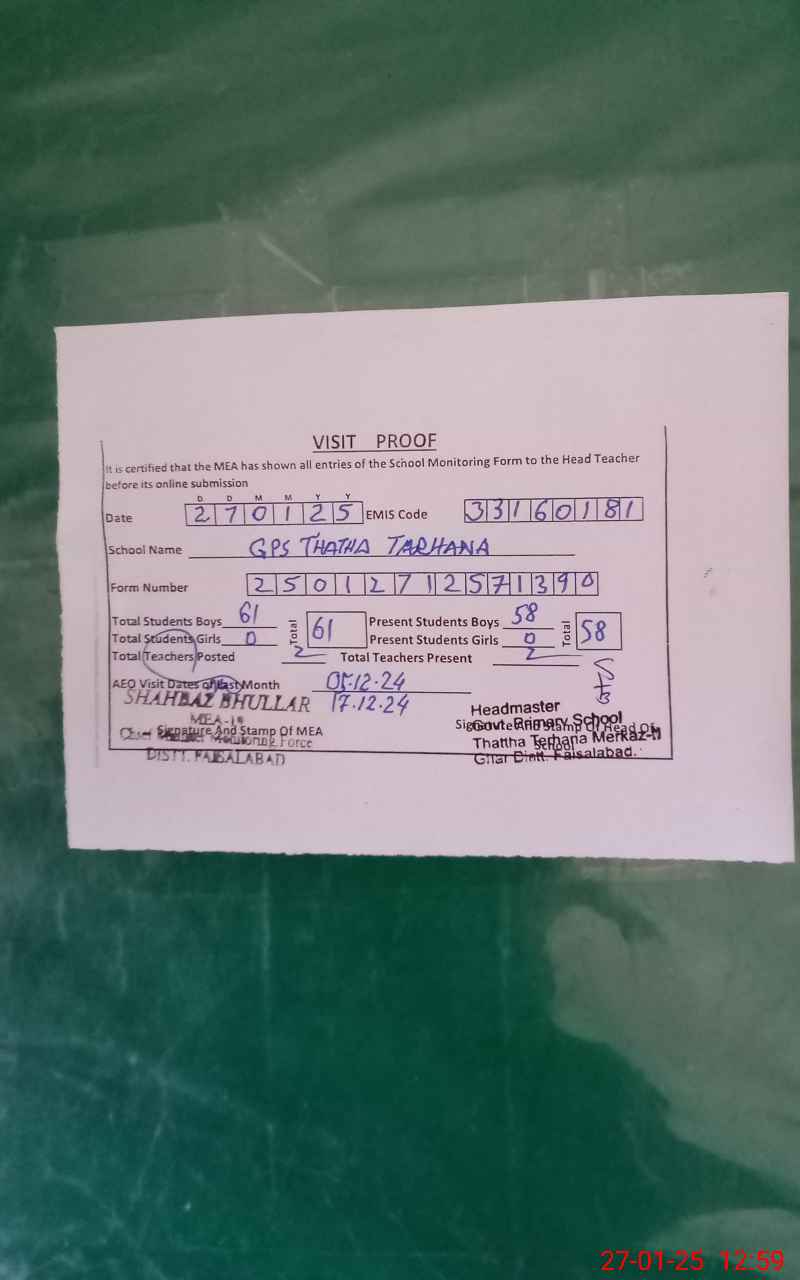 VISIT PROOF
It is certified that the MEA has shown all entries of the School Monitoring Form to the Head Teacher
before its online submission
D D M M Y Y
Date 270125 EMIS Code 33160181
School Name GPS THATHA TARHANA
Form Number 25012712571390
Total Students Boys 61 Total 61 Present Students Boys 58 Total 58
Total Students Girls 0 Present Students Girls 0
Total Teachers Posted 2 Total Teachers Present 2
AEO Visit Dates of Last Month 05.12.24
17.12.24
SHAHBAZ BHULLAR
MEA-19
Signature And Stamp Of MEA
Chief Minister Monitoring Force
DISTT. FAISALABAD
Headmaster
Govt. Primary School
Signature And Stamp Of Head Of
School
Thattha Terhana Merkaz-II
Distt. Faisalabad.
27-01-25 12:59